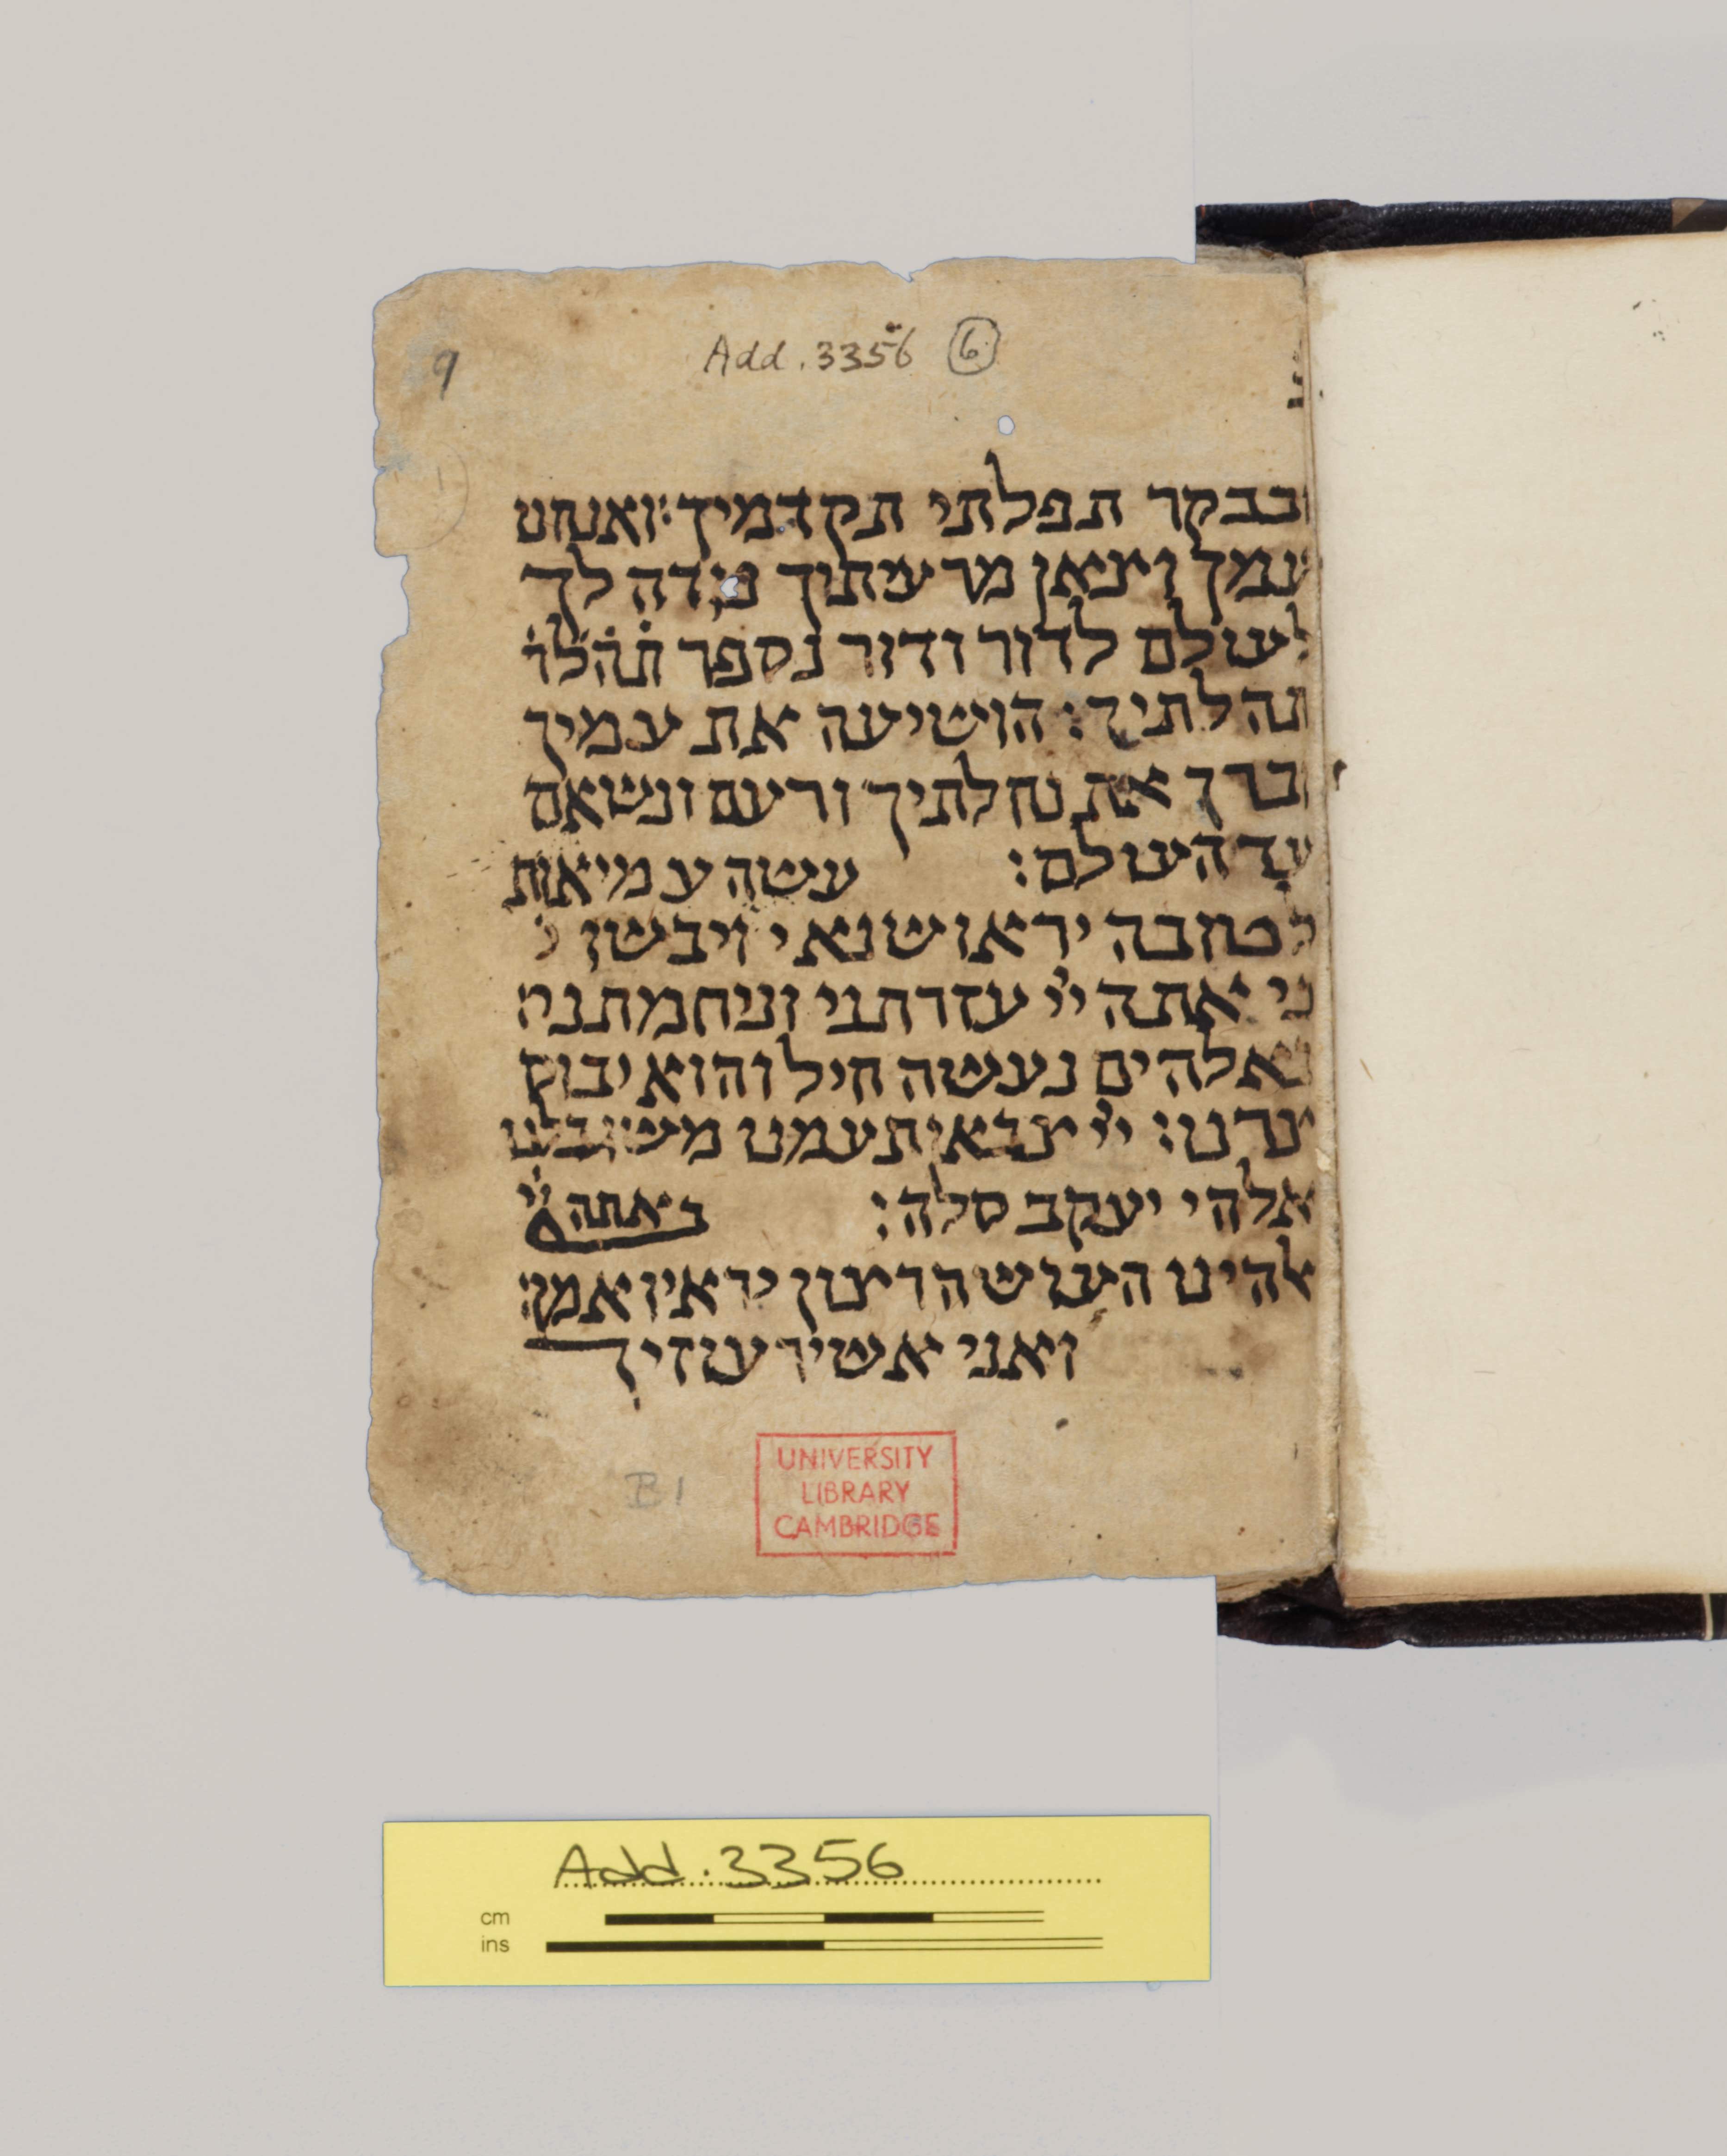 Add. 3356 6
9
1
ובבקר תפלתי תקדמיך: ואנחנו
עמך וצאן מרעתיך נודה לך
לעולם לדור ודור נספר תהלו
תהלתיך: הושיעה את עמיך
וברך את נחלתיך ורעם ונשאם
עד העולם: עשה עמי אות
לטובה יראו שנאי ויבשו
כי אתה יי עזרתני וניחמתני:
באלהים נעשה חיל והוא יבוס
צרנו: יי צבאות עמנו משגב לנו
אלהי יעקב סלה: באתה יי
אלהינו העושה רצון יראיו אמן:
ואני אשיר עוזיך
B1
UNIVERSITY
LIBRARY
CAMBRIDGE
Add. 3356
cm
ins